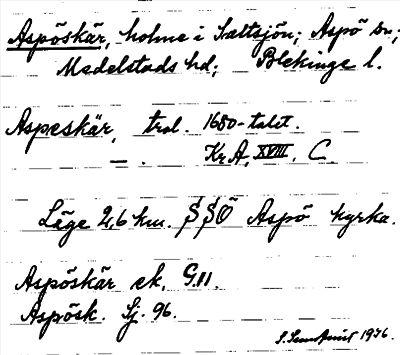 Aspöskär, holme i Saltsjön; Aspö sn;
Medelstads hd; Blekinge l.
Aspeskär, trol. 1680-talet.
— . Kr A, XVIII, C.
Läge 2,6 km. SSÖ Aspö kyrka.
Aspöskär ek. G.11.
Aspösk. Sj. 96.
1936.